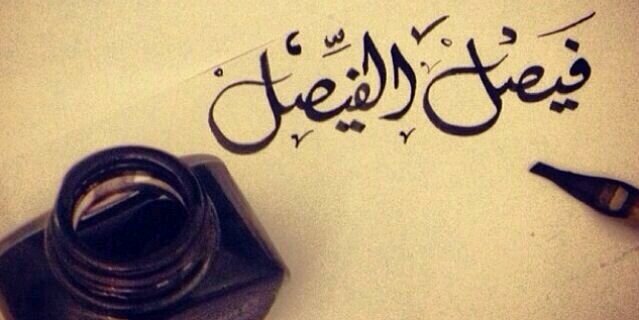 فيصل الفيصل